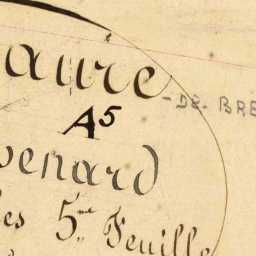 aure
-DE- BRE
A5
penard
les 5me Feuille